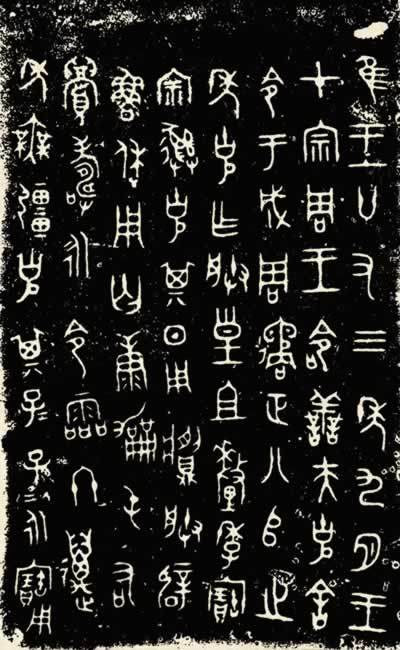 隹王廿又三年九月王
才宗周王命善夫克舍
令于成周遹正八𠂤之
年克乍朕皇且釐季寶
宗彝克其日用𩰬朕辟
魯休用匄康勵屯右
眉壽永令霝冬邁
年無疆克其子=孫=永寶用